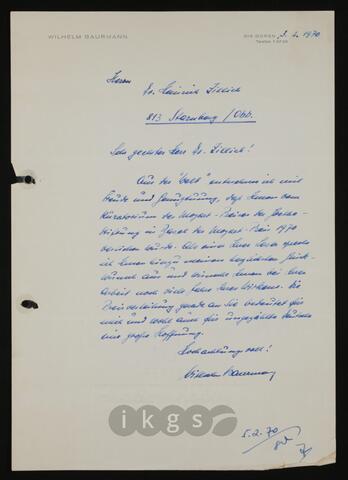 WILHELM BAURMANN
516 DÜREN, 3. 2. 1970
Telefon
Herrn
Dr. Heinrich Zillich
813 Starnberg / Obb.
Sehr geehrter Herr Dr. Zillich!
Aus der "Welt" entnehme ich mit
Freude und Genugtuung, daß Ihnen vom
Kuratorium des Mozart-Preises der Goethe-
Stiftung in Basel der Mozart-Preis 1970
verliehen wurde. Als einer Ihrer Leser spreche
ich Ihnen hierzu meinen herzlichsten Glück-
wunsch aus und wünsche Ihnen bei Ihrer
Arbeit noch viele Jahre Ihres Wirkens. Die
Preisverleihung gerade an Sie bedeutet für
mich und wohl auch für ungezählte Deutsche
eine große Hoffnung.
Hochachtungsvoll!
Wilhelm Baurmann
ikgs
5.2.70